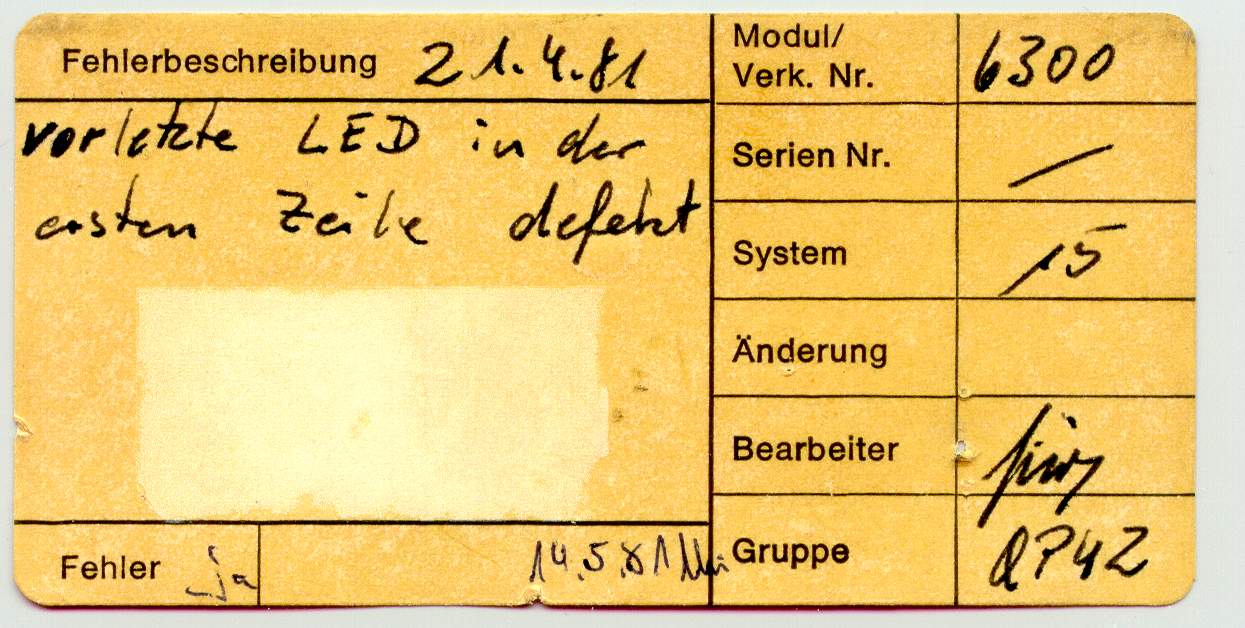 Fehlerbeschreibung 21.4.81
vorletzte LED in der
ersten Zeile defekt
Fehler ja
14.5.81
Modul/
Verk. Nr. 6300
Serien Nr. /
System 15
Änderung
Bearbeiter
Gruppe QP42